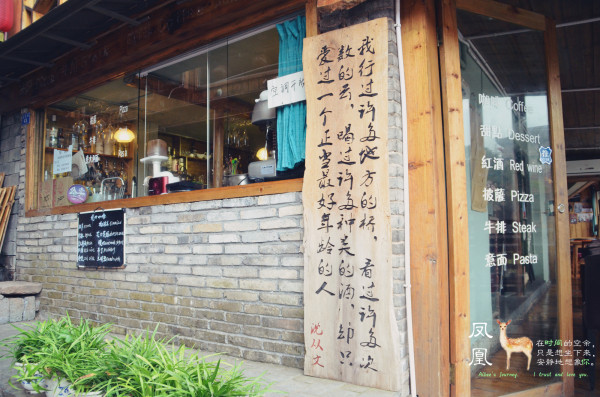 我行过许多地方的桥，看过许多次
数的云，喝过许多种美的酒，却只
爱过一个正当最好年龄的人
沈从文
空调开
咖啡 Coffee
甜點 Dessert
红酒 Red wine
披薩 Pizza
牛排 Steak
意面 Pasta
凤凰
在时间的空余，
只是想坐下来，
安静地想象你。
I trust and love you.